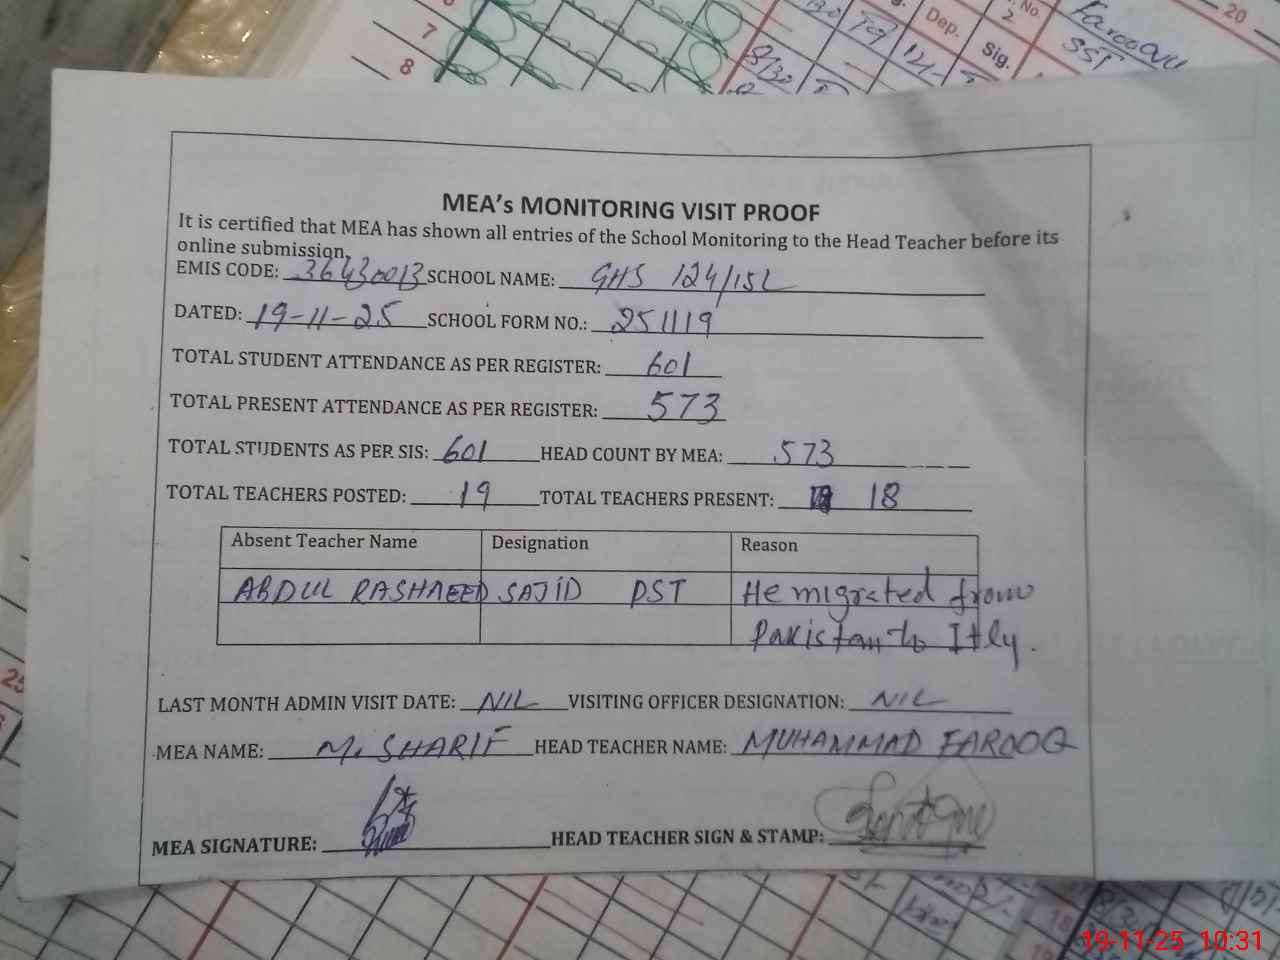 7
8
Dep.
Sig.
No.
2
20
SST
MEA's MONITORING VISIT PROOF
It is certified that MEA has shown all entries of the School Monitoring to the Head Teacher before its
online submission.
EMIS CODE: 36430013 SCHOOL NAME: GHS 124/15L
DATED: 19-11-25 SCHOOL FORM NO.: 251119
TOTAL STUDENT ATTENDANCE AS PER REGISTER: 601
TOTAL PRESENT ATTENDANCE AS PER REGISTER: 573
TOTAL STUDENTS AS PER SIS: 601 HEAD COUNT BY MEA: 573
TOTAL TEACHERS POSTED: 19 TOTAL TEACHERS PRESENT: 18
Absent Teacher Name Designation Reason
ABDUL RASHAEED SAJID PST He migrated from
Pakistan to Itly.
LAST MONTH ADMIN VISIT DATE: NIL VISITING OFFICER DESIGNATION: NIL
MEA NAME: M. SHARIF HEAD TEACHER NAME: MUHAMMAD FAROOQ
MEA SIGNATURE: HEAD TEACHER SIGN & STAMP:
25
18
19-11-25 10:31